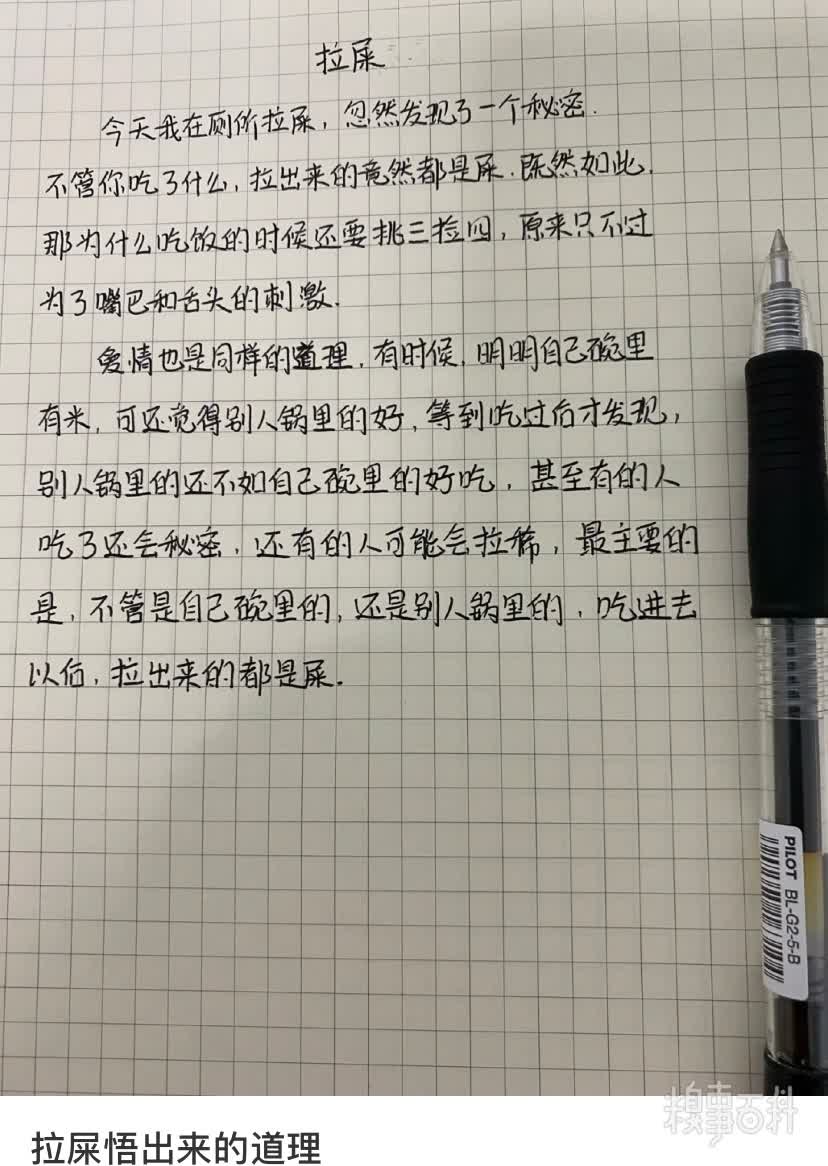 拉屎
今天我在厕所拉屎，忽然发现了一个秘密.
不管你吃了什么，拉出来的竟然都是屎.既然如此.
那为什么吃饭的时候还要挑三捡四，原来只不过
为了嘴巴和舌头的刺激.
爱情也是同样的道理，有时候，明明自己碗里
有米，可还觉得别人锅里的好，等到吃过后才发现，
别人锅里的还不如自己碗里的好吃，甚至有的人
吃了还会秘密，还有的人可能会拉稀，最主要的
是，不管是自己碗里的，还是别人锅里的，吃进去
以后，拉出来的都是屎.
PILOT BL-G2-5-B
糗事百科
拉屎悟出来的道理